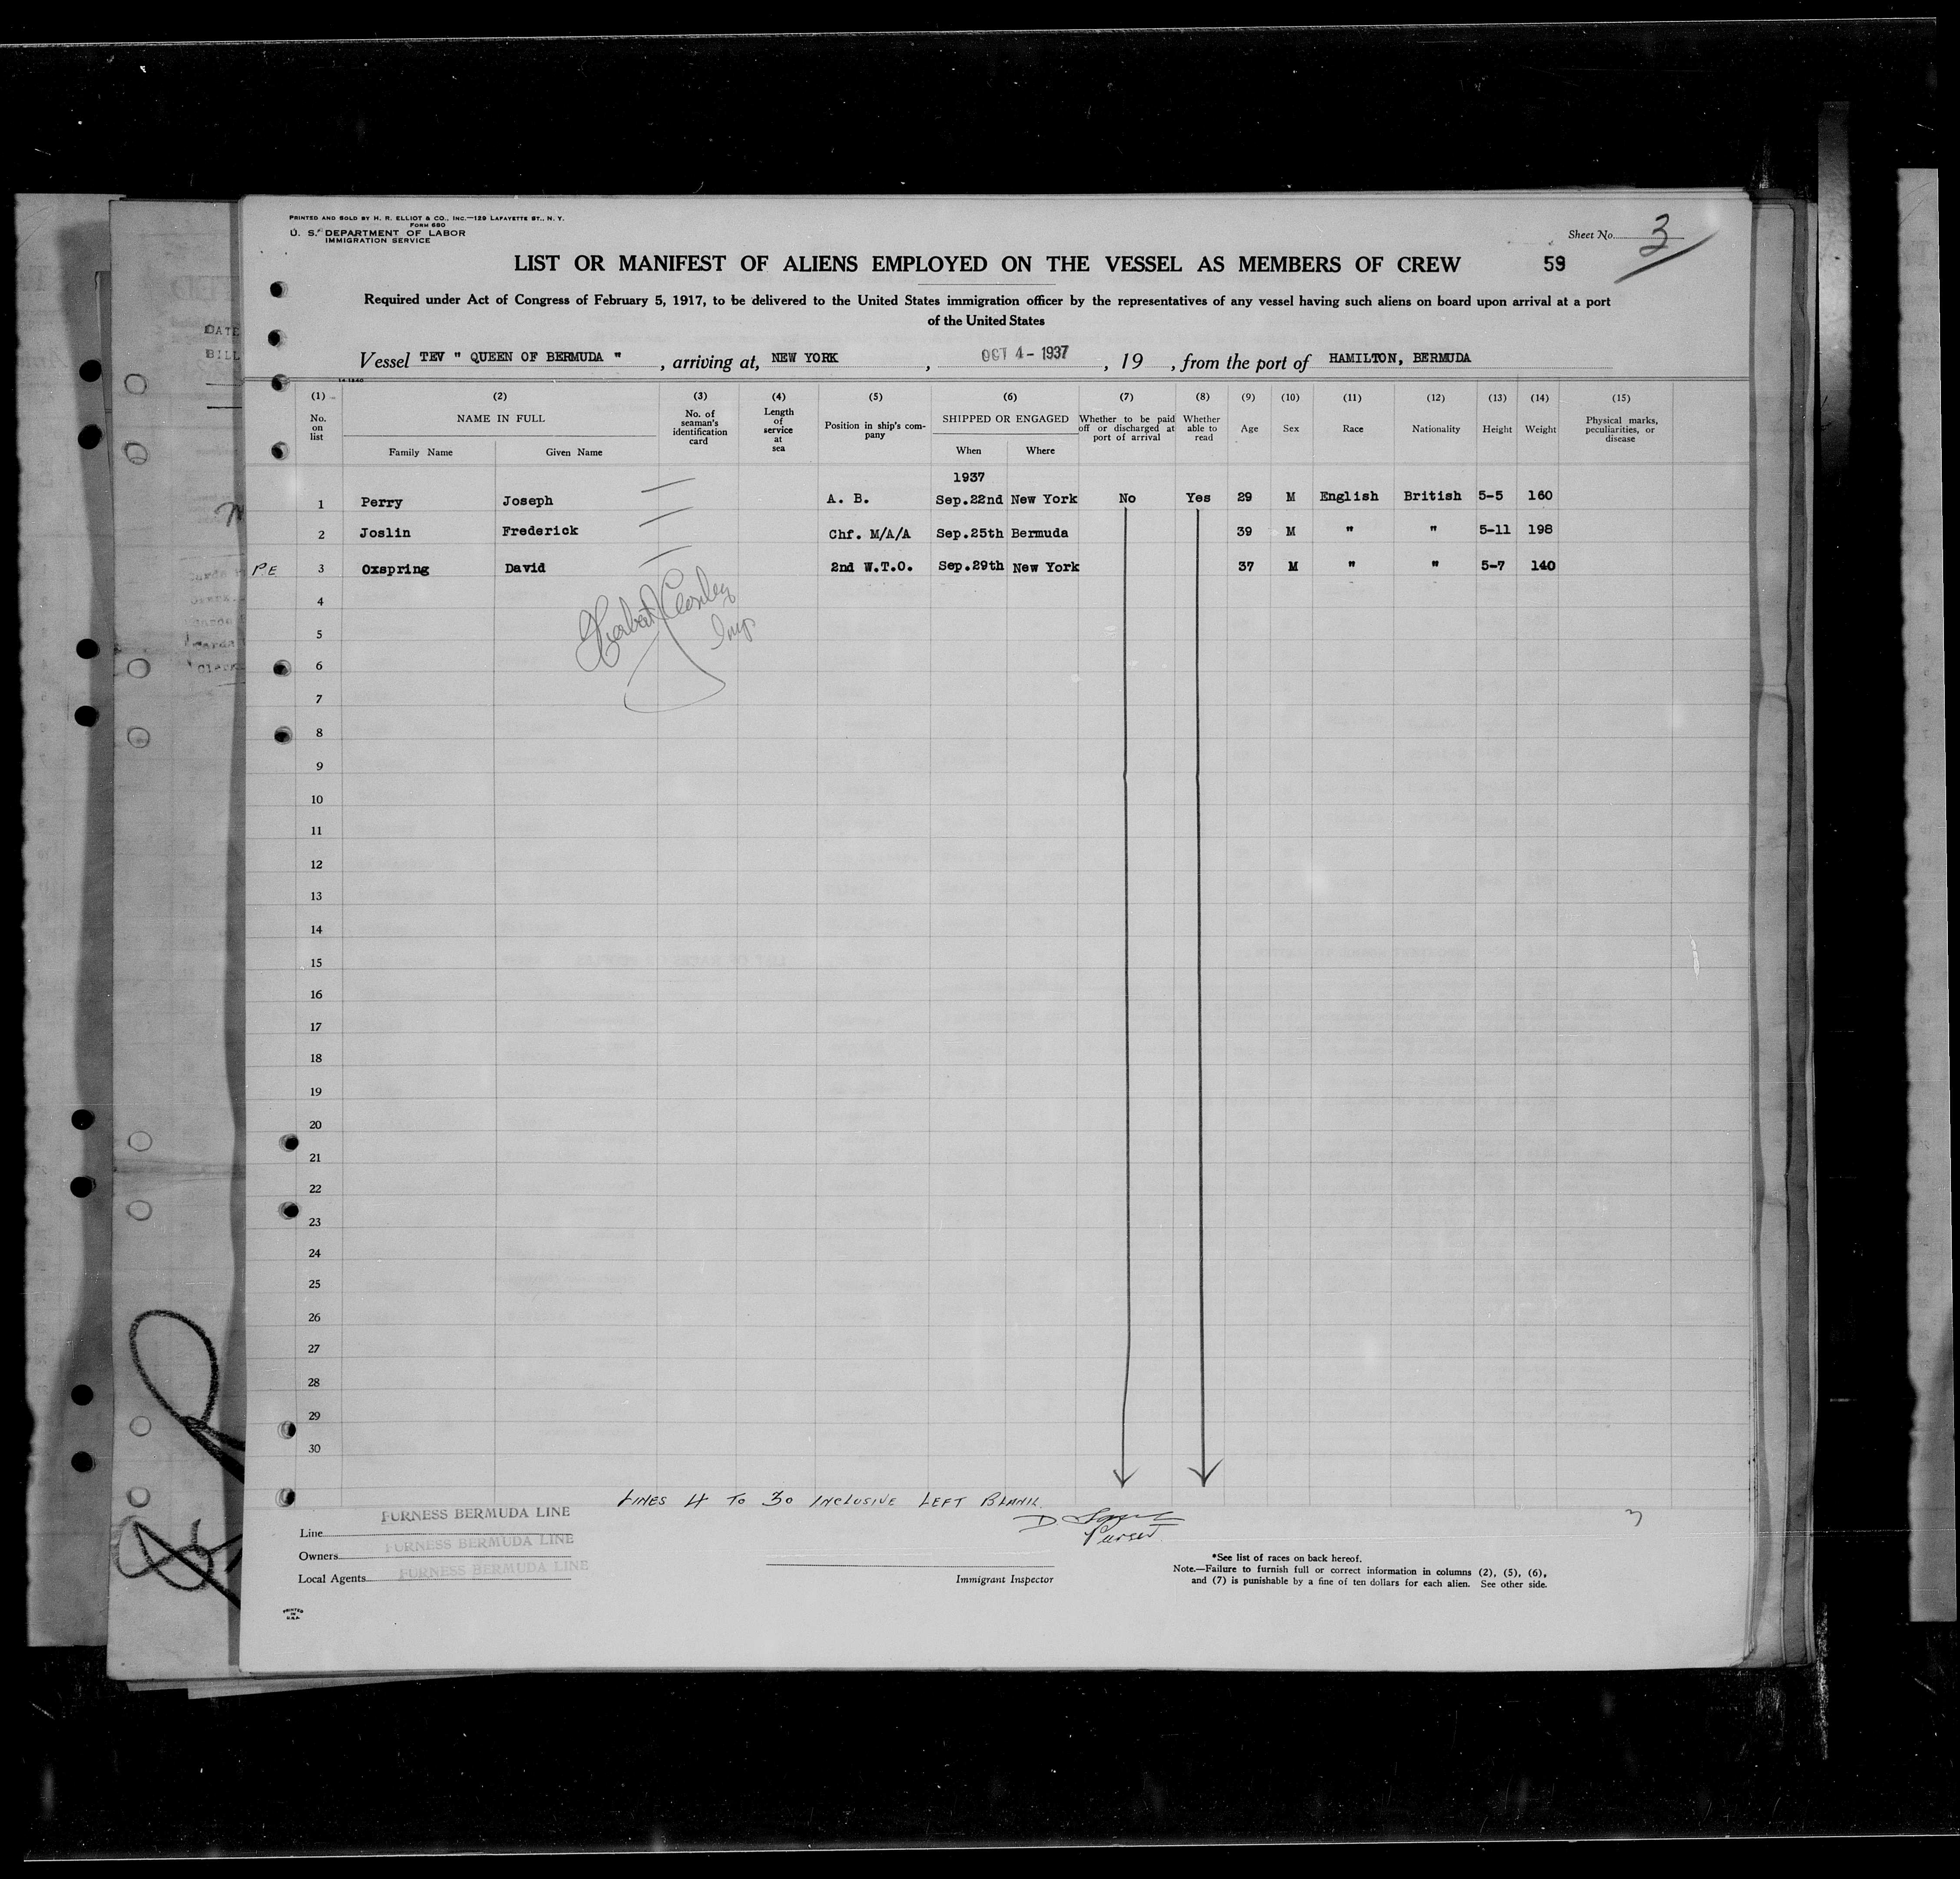 PRINTED AND SOLD BY H. R. ELLIOT & CO., INC.—129 LAFAYETTE ST., N. Y.
FORM 680
U. S. DEPARTMENT OF LABOR
IMMIGRATION SERVICE
Sheet No. 3
LIST OR MANIFEST OF ALIENS EMPLOYED ON THE VESSEL AS MEMBERS OF CREW 59
Required under Act of Congress of February 5, 1917, to be delivered to the United States immigration officer by the representatives of any vessel having such aliens on board upon arrival at a port
of the United States
Vessel TEV " QUEEN OF BERMUDA " , arriving at, NEW YORK , OCT 4 - 1937 , 19 , from the port of HAMILTON, BERMUDA
(1) (2) (3) (4) (5) (6) (7) (8) (9) (10) (11) (12) (13) (14) (15)
No. on list NAME IN FULL Family Name Given Name No. of seaman's identification card Length of service at sea Position in ship's company SHIPPED OR ENGAGED When Where Whether to be paid off or discharged at port of arrival Whether able to read Age Sex Race Nationality Height Weight Physical marks, peculiarities, or disease
1937
1 Perry Joseph A. B. Sep.22nd New York No Yes 29 M English British 5-5 160
2 Joslin Frederick Chf. M/A/A Sep.25th Bermuda 39 M " " 5-11 198
P.E 3 Oxspring David 2nd W.T.O. Sep.29th New York 37 M " " 5-7 140
4
5
6
7
8
9
10
11
12
13
14
15
16
17
18
19
20
21
22
23
24
25
26
27
28
29
30
LINES 4 TO 30 INCLUSIVE LEFT BLANK.
Purser
Line FURNESS BERMUDA LINE
Owners FURNESS BERMUDA LINE
Local Agents FURNESS BERMUDA LINE
Immigrant Inspector
*See list of races on back hereof.
Note.—Failure to furnish full or correct information in columns (2), (5), (6),
and (7) is punishable by a fine of ten dollars for each alien. See other side.
PRINTED IN U.S.A.